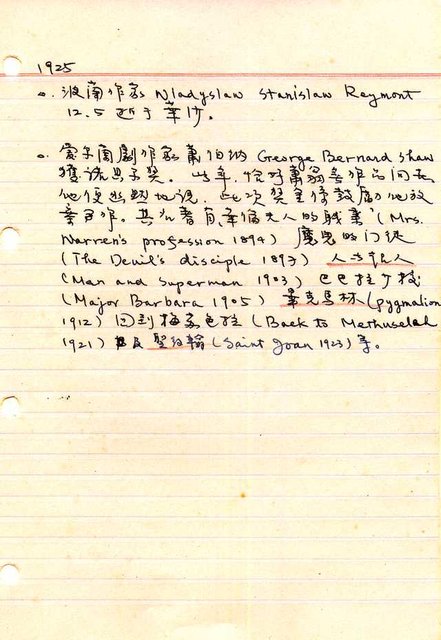 1925
○. 波蘭作家 Wladyslaw Stanislaw Reymont
12.5 逝于華沙。
○. 愛尔蘭劇作家蕭伯納 George Bernard Shaw
獲諾貝尔奖。此年，恰好蕭翁无作品问世
他便幽黙地说，此次奖金係鼓勵他放
棄写作。其名著有華倫夫人的職業 (Mrs.
Warren's profession 1894) 魔鬼的门徒
(The Devil's disciple 1897) 人与超人
(Man and Superman 1903) 巴巴拉少校
(Major Barbara 1905) 畢克馬林 (pygmalion
1912) 回到梅塞色拉 (Back to Methuselah
1921) 及 聖約翰 (Saint Joan 1923) 等。